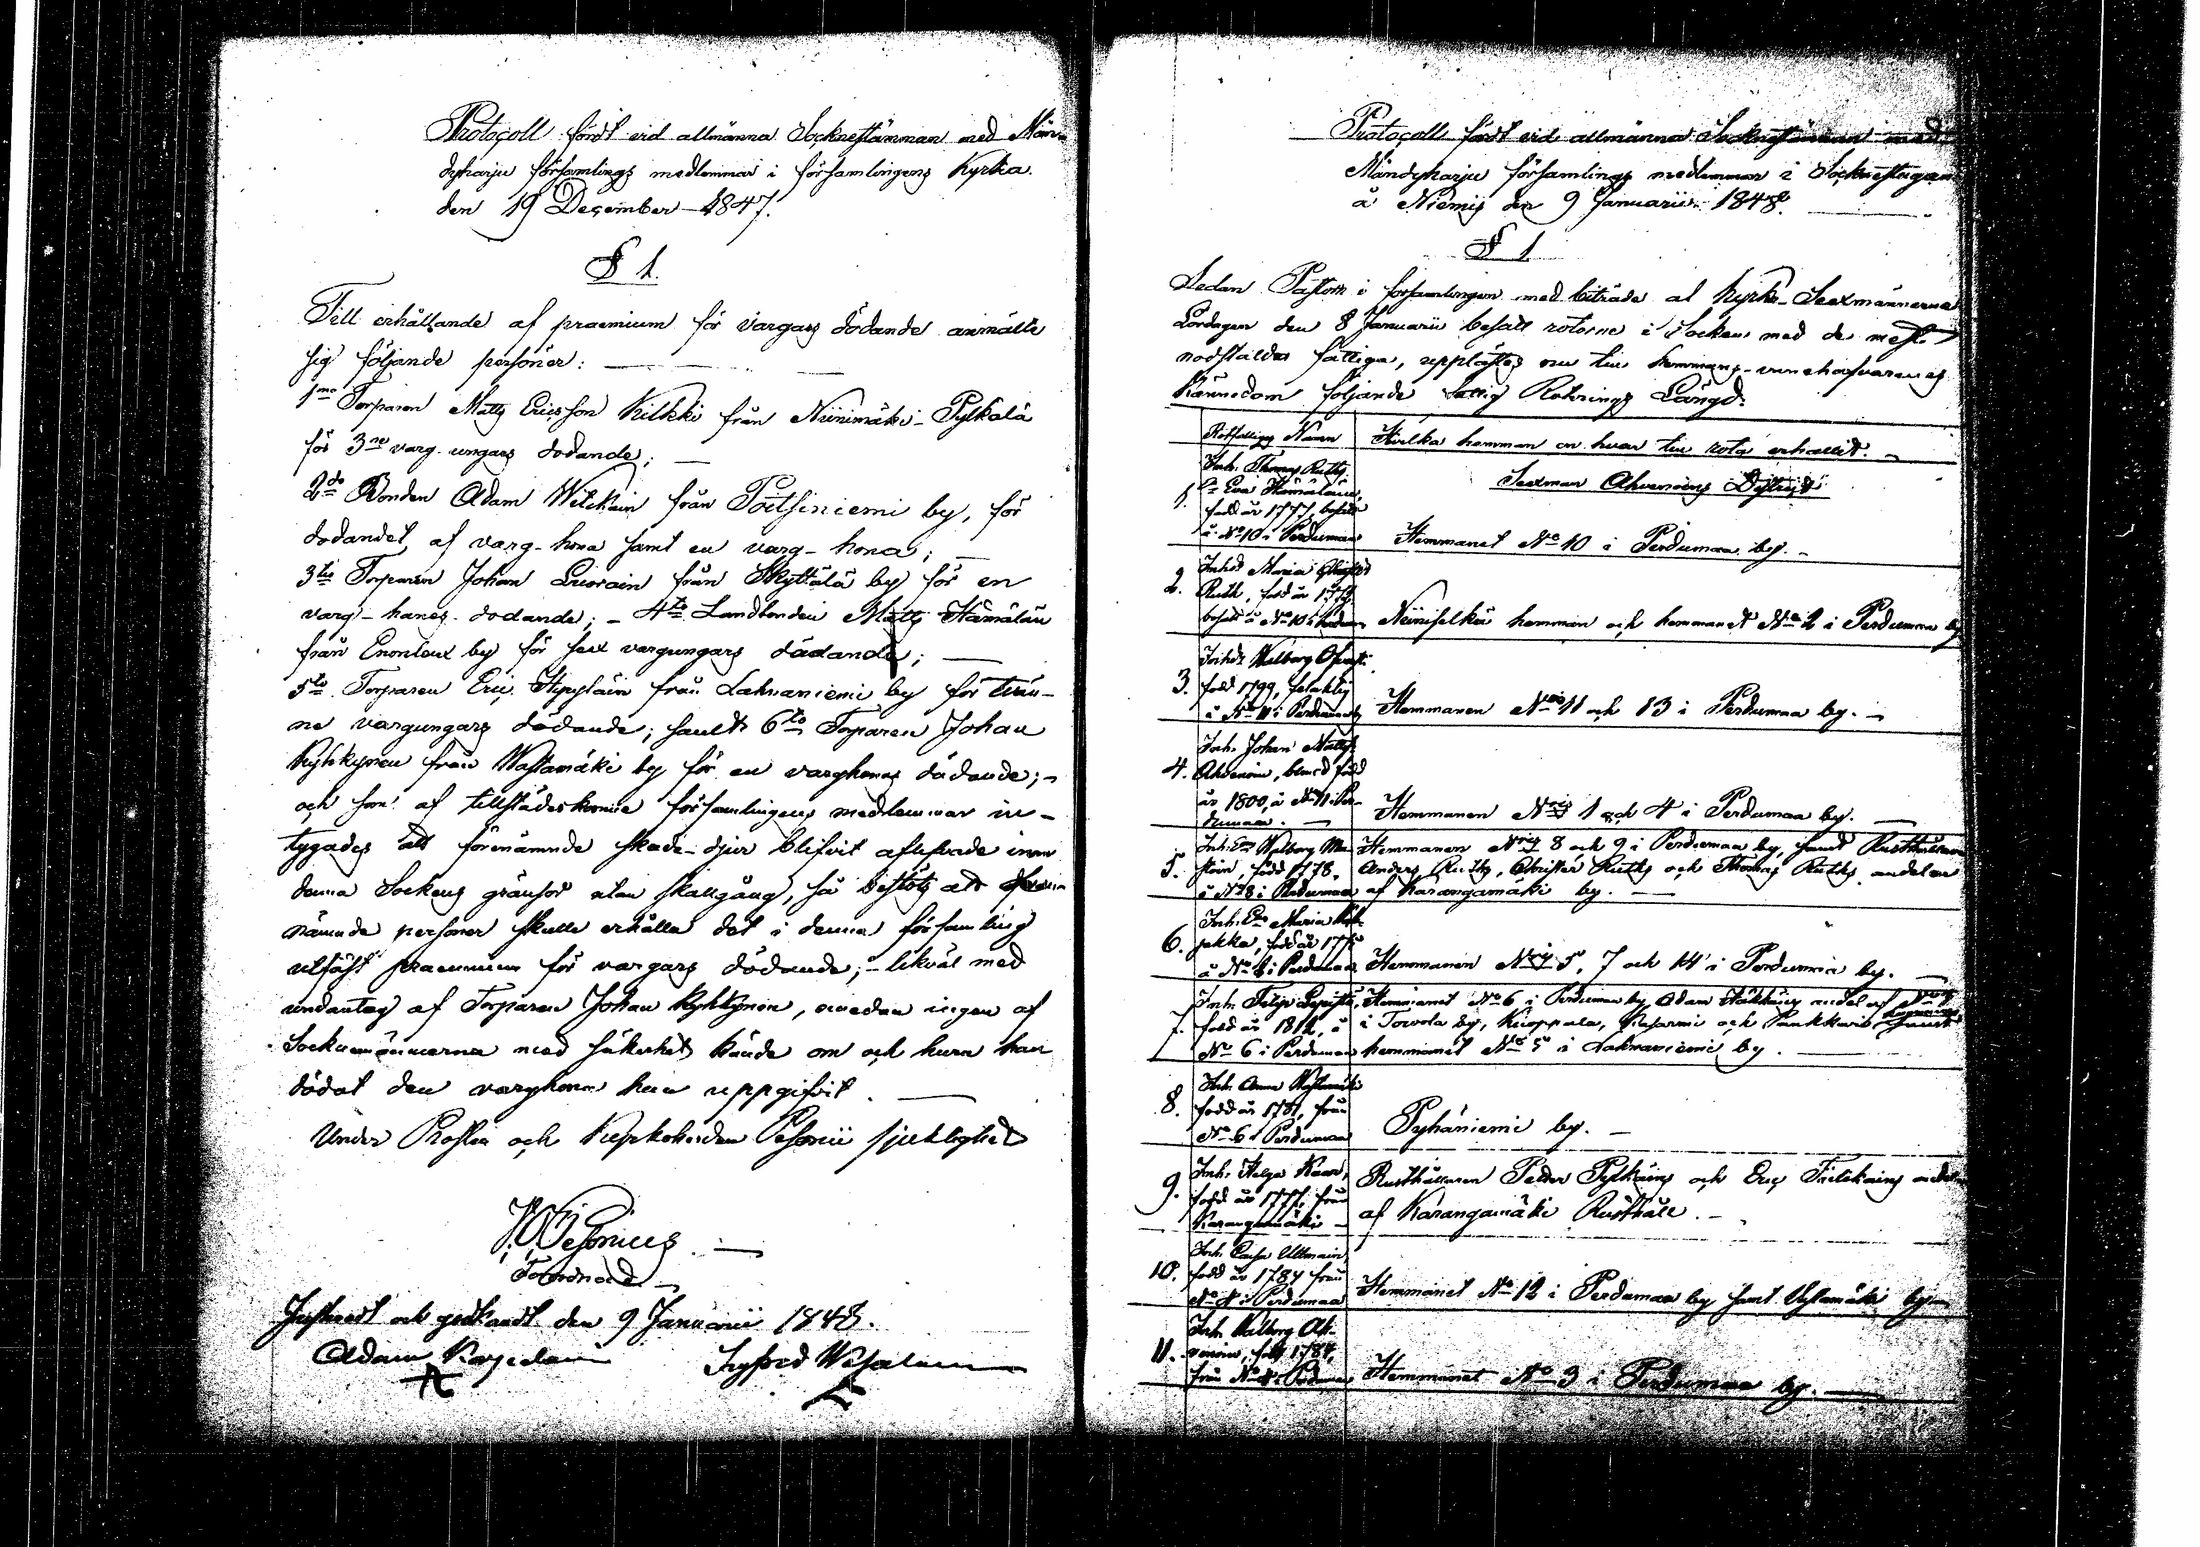 Protocoll fördt vid allmänna Socknestämman med Män-
dyharju församlings medlemmar i församlingens Kyrka
den 19 December 1847.
§ 1.
Till erhållande af praemium för vargars dödande anmälte
sig följande personer:
1mo Torparen Matts Ericsson Kilkki från Niinimäki-Pylkälä
för 3ne varg-ungars dödande;
2do Bonden Adam Witikain från Pöitsiniemi by, för
dödandet af varg-hona samt en varg-hona;
3tio Torparen Johan från Skyttälä by för en
varg-hanes dödande; - 4to Landbonden Matts Hämäläin
från Enonlax by för sex vargungars dödande;
5to Torparen Eric från Lahnaniemi by för tven-
ne vargungars dödande; samt 6to Torparen Johan
Kyhkynen från Wastamäki by för en varghonas dödande;-
och som af tillstädeskomne församlingens medlemmar in-
tygades att förenämnde skade-djur blifvit aflifvade inom
denna Sockens gränsor utan skallgång, så beslöts att
nämnde personer skulle erhålla det i denna församling
utfäst praemium för vargars dödande; - likväl med
undantag af Torparen Johan Kyhkynen, emedan ingen af
Socknemännerna med säkerhet kände om och huru han
dödat den varghona han uppgifvit.
Under Prosten och Kyrkoherden Pesonii sjuklighet
Pesonius
Justeradt och godkändt den 9 Januarii 1848.
Adam
Sigfred
Protocoll fördt vid allmänna Sockenstämman med
Mändyharju församlings medlemmar i Socknestugan
å Niemis den 9 Januarii 1848.
§ 1
Sedan Pastorn i församlingen med biträde af Kyrko-Sexmännerna
Lördagen den 8 Januarii besatt rotorne i Socken med de mest
nödstälda fattiga, upplästes nu till hemmans-innehafvarenes
kännedom följande Fattig Roterings Längd:
Rotfattigas Namn Hvilka hemman en hvar till rota erhållit.
Sexman Ahvenains District
1. Inh. Thomas Ruths
Ea Eva Hämäläin,
född år 1777, besatt
å No 10 i Perdumaa Hemmanet No 10 i Perdumaa by.
2. Inhed Maria
Ruth, född år
besatt å No 10 i Niiniselkä hemman och hemmanet No 2 i Perdumaa by
3. Inhed Walborg
född 1799,
å No 11 i Perdumaa Hemmanen Nris 11 och 13 i Perdumaa by.
4. Inh. Johan Matts
Ahvenain, blind född
år 1800, å No 11 i Per-
dumaa. Hemmanen Nris 1 och 4 i Perdumaa by.
5. Inh. Ea Walborg Hemmanen Nris 8 och 9 i Perdumaa by, samt Rusthållaren
född 1778, Anders Ruths, Christer Ruths och Thomas Ruths andelar
å No 8 i Perdumaa af Karangamäki by.
6. Inh. Ea Maria
född år
å No i Perdumaa Hemmanen Nris 5, 7 och 14 i Perdumaa by.
7. Inh. Hemmanet No 6 i Perdumaa by, Adam andel af
född år 1812, å i Toivola by, Kuoppala, och samt
No 6 i Perdumaa hemmanet No 5 i Lahnaniemi by.
8. Inh. Anna
född år 1781, från
No 6 i Perdumaa Pyhäniemi by.
9. Inh. Helga
född år 1777, från
Karangamäki Rusthållaren Petter Pylkäins och Eric andelar
af Karangamäki Rusthåll.
10. Inh. Caisa Ullmain
född år 1784 från
No i Perdumaa Hemmanet No 12 i Perdumaa by samt by
11. Inh. Walborg Ah-
venain, född 1784,
från No Perdumaa Hemmanet No 3 i Perdumaa by.